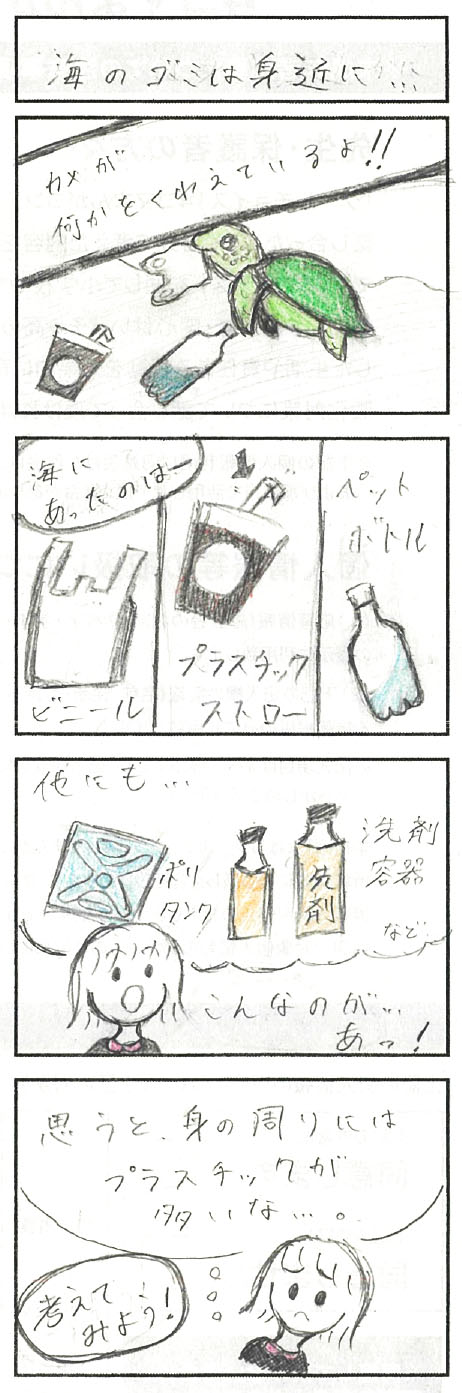 海のゴミは身近に…
カメが
何かをくわえているよ!!
海に
あったのは…
ビニール
プラスチック
ストロー
ペット
ボトル
他にも…
ポリ
タンク
洗剤
洗剤
容器
など
こんなのが…
あっ!
思うと、身の周りには
プラスチックが
多いな…。
考えて
みよう!